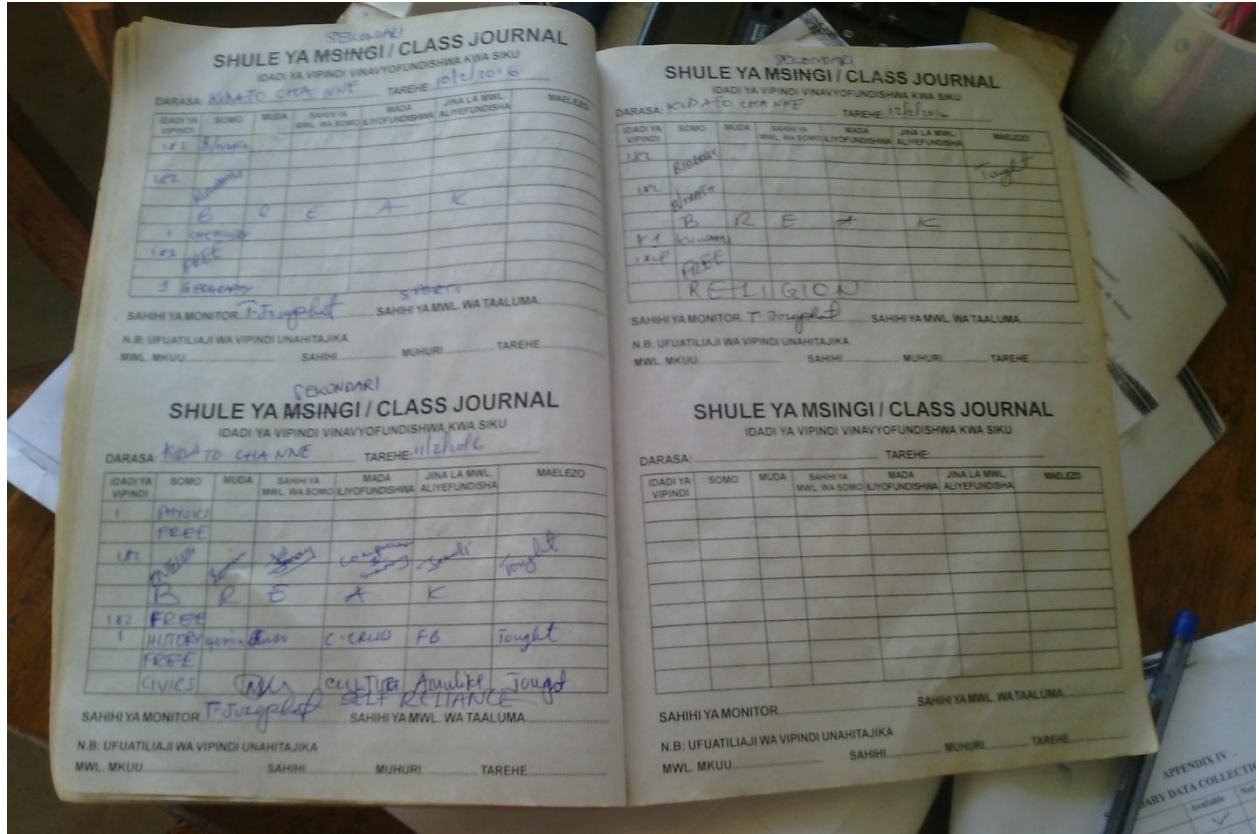 SEKONDARI
SHULE YA MSINGI / CLASS JOURNAL
IDADI YA VIPINDI VINAVYOFUNDISHWA KWA SIKU
DARASA: KIDATO CHA NNE TAREHE: 10/2/2016
IDADI YA VIPINDI SOMO MUDA SAHIHI YA MWL. WA SOMO MADA ILIYOFUNDISHWA JINA LA MWL. ALIYEFUNDISHA MAELEZO
1&2
1&2
B R E A K
1 CHEMISTRY
1&2 FREE
1 GEOGRAPHY
SPORTS
SAHIHI YA MONITOR T-Jozephat SAHIHI YA MWL. WA TAALUMA
N.B: UFUATILIAJI WA VIPINDI UNAHITAJIKA
MWL. MKUU SAHIHI MUHURI TAREHE
SEKONDARI
SHULE YA MSINGI / CLASS JOURNAL
IDADI YA VIPINDI VINAVYOFUNDISHWA KWA SIKU
DARASA: KIDATO CHA NNE TAREHE: 11/2/2016
IDADI YA VIPINDI SOMO MUDA SAHIHI YA MWL. WA SOMO MADA ILIYOFUNDISHWA JINA LA MWL. ALIYEFUNDISHA MAELEZO
1 PHYSICS
FREE
1&2 ENGLISH Tought
B R E A K
1&2 FREE
1 HISTORY 40min FB Tought
FREE
CIVICS CULTURE Amulike Tought
SELF RELIANCE
SAHIHI YA MONITOR T-Jozephat SAHIHI YA MWL. WA TAALUMA
N.B: UFUATILIAJI WA VIPINDI UNAHITAJIKA
MWL. MKUU SAHIHI MUHURI TAREHE
SEKONDARI
SHULE YA MSINGI / CLASS JOURNAL
IDADI YA VIPINDI VINAVYOFUNDISHWA KWA SIKU
DARASA: KIDATO CHA NNE TAREHE: 12/2/2016
IDADI YA VIPINDI SOMO MUDA SAHIHI YA MWL. WA SOMO MADA ILIYOFUNDISHWA JINA LA MWL. ALIYEFUNDISHA MAELEZO
1&2 BIOLOGY Tought
1&2 B/MATH
B R E A K
FREE
RELIGION
SAHIHI YA MONITOR T-Jozephat SAHIHI YA MWL. WA TAALUMA
N.B: UFUATILIAJI WA VIPINDI UNAHITAJIKA
MWL. MKUU SAHIHI MUHURI TAREHE
SHULE YA MSINGI / CLASS JOURNAL
IDADI YA VIPINDI VINAVYOFUNDISHWA KWA SIKU
DARASA: TAREHE:
IDADI YA VIPINDI SOMO MUDA SAHIHI YA MWL. WA SOMO MADA ILIYOFUNDISHWA JINA LA MWL. ALIYEFUNDISHA MAELEZO
SAHIHI YA MONITOR SAHIHI YA MWL. WA TAALUMA
N.B: UFUATILIAJI WA VIPINDI UNAHITAJIKA
MWL. MKUU SAHIHI MUHURI TAREHE
APPENDIX IV
DATA COLLECTION
Available